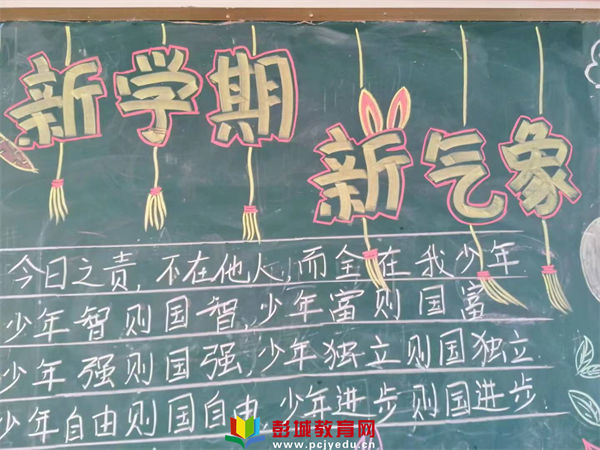 新学期
新气象
今日之责,不在他人,而全在我少年
少年智则国智,少年富则国富
少年强则国强,少年独立则国独立.
少年自由则国自由,少年进步则国进步.
彭城教育网
www.pcjyedu.cn